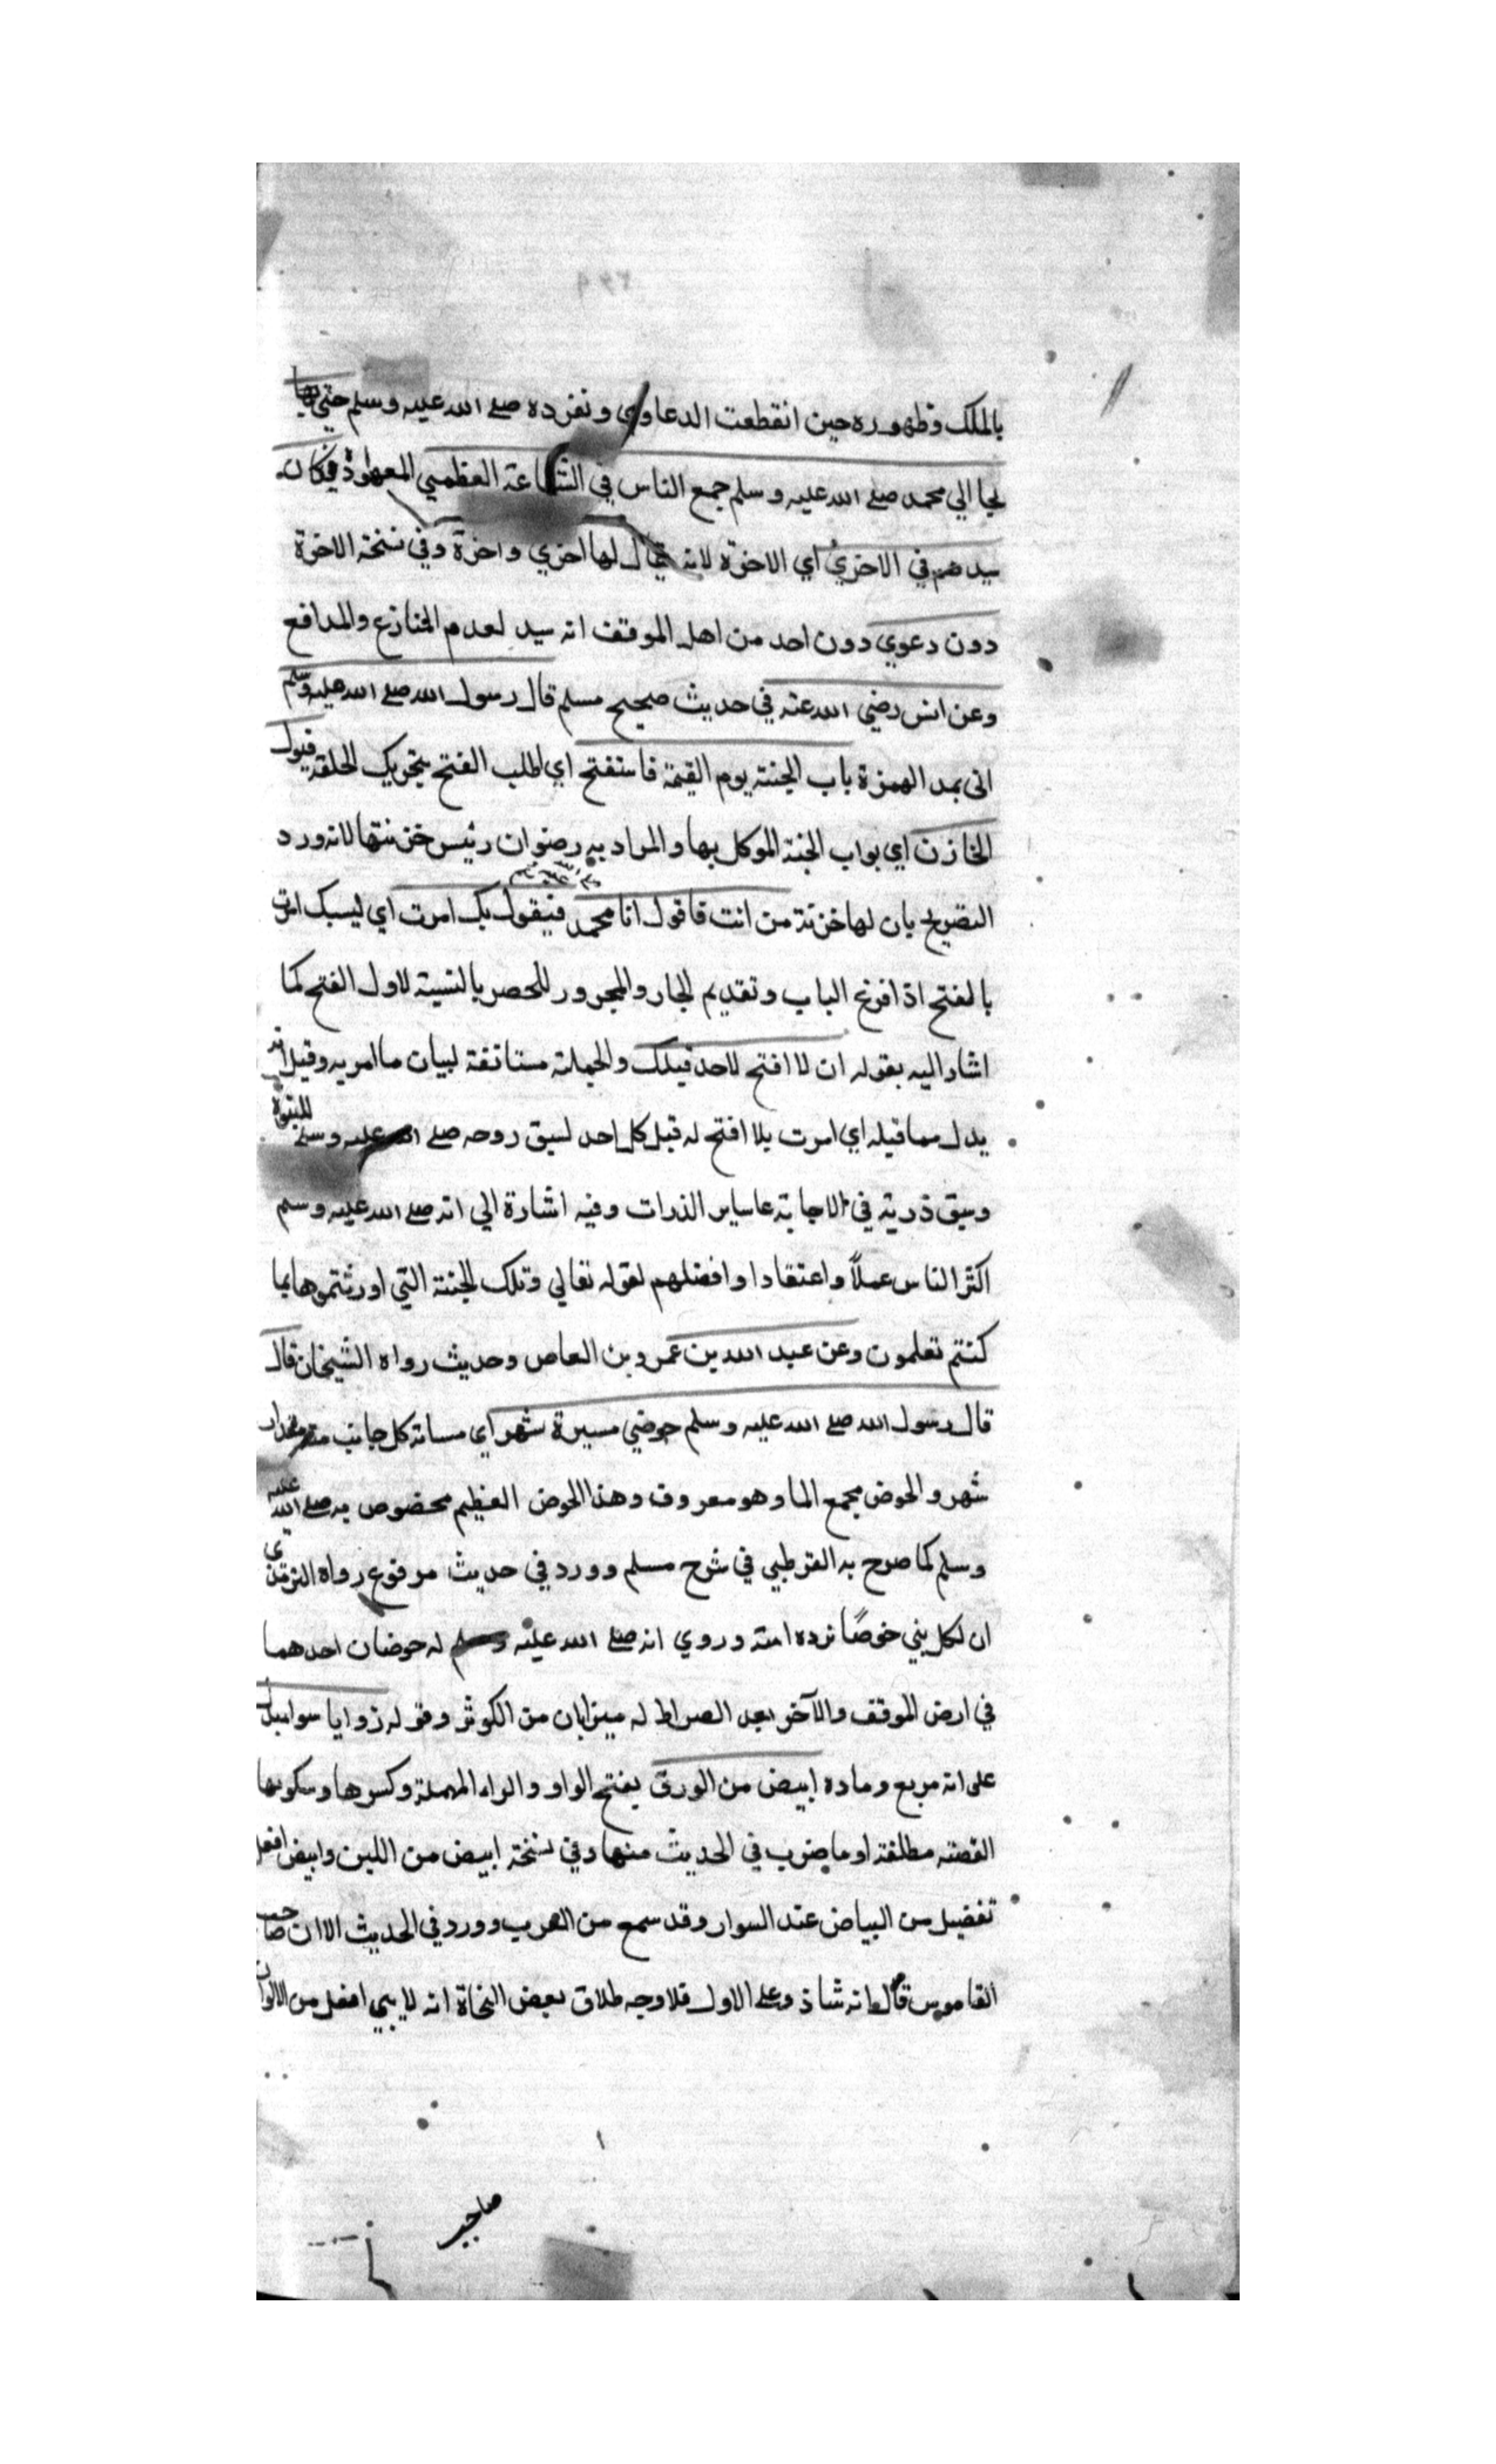 بالملك وظهوره حين انقطعت الدعاوي وتفرده صلي الله عليه وسلم حتي
لجا الي محمد صلي الله عليه وسلم جمع الناس في الشفاعة العظمي المعهودة فكان
سيدهم في الاخري اي الاخرة لانه يقال لها اخري واخرة وفي نسخة الاخرة
دون دعوي دون احد من اهل الموقف انه سيد لعدم المنازع والمدافع
وعن انس رضي الله عنه في حديث صحيح مسلم قال رسول الله صلي الله عليه وسلم
اتى بمد الهمزة باب الجنة يوم القيمة فاستفتح اي اطلب الفتح بتحريك الحلقة فيقول
الخازن اي بواب الجنة الموكل بها والمراد به رضوان رئيس خزنتها لانه ورد
التصريح بان لها خزنة من انت فاقول انا محمد فيقول بك امرت اي لسبك امرت
بالفتح اذ افرغ الباب وتقديم الجار والمجرور للحصر بالنسبة لاول الفتح كما
اشار اليه بقوله ان لا افتح لاحد قبلك والجملة مستانفة لبيان ما امر به وقيل انه
بدل مما قبله اي امرت بلا افتح له قبل كل احد لسبق روحه صلي الله عليه وسلم للنبوة
وسبق ذريته في الاجابة عاساير الذرات وفيه اشارة الي انه صلي الله عليه وسلم
اكثر الناس عملاً واعتقادا وافضلهم لقوله تعالي وتلك الجنة التي اورثتموها بما
كنتم تعلمون وعن عبد الله بن عمرو بن العاص وحديث رواه الشيخان قال
قال رسول الله صلي الله عليه وسلم حوضي مسيرة شهر اي مسافة كل جانب مقدار
شهر والحوض مجمع الما وهو معروف وهذا الحوض العظيم مخصوص به صلي الله عليه
وسلم كما صرح به القرطبي في شرح مسلم وورد في حديث مرفوع رواه الترمذي
ان لكل نبي حوضًا ترده امته وروي انه صلي الله عليه وسلم له حوضان احدهما
في ارض الموقف والآخر بعد الصراط له ميزابان من الكوثر وقوله زوايا سوا
على انه مربع وماده ابيض من الورق بفتح الواو والراء المهملة وكسرها وسكونها
الفضة مطلقة او ما ضرب في الحديث منها وفي نسخة ابيض من اللبن وابيض افعل
تفضيل من البياض عند السوار وقد سمع من العرب وورد في الحديث الا ان صاحب
القاموس قال انه شاذ وعلي الاول فلا وجه طلاق بعض النحاة انه لا يبي افعل من الالوان